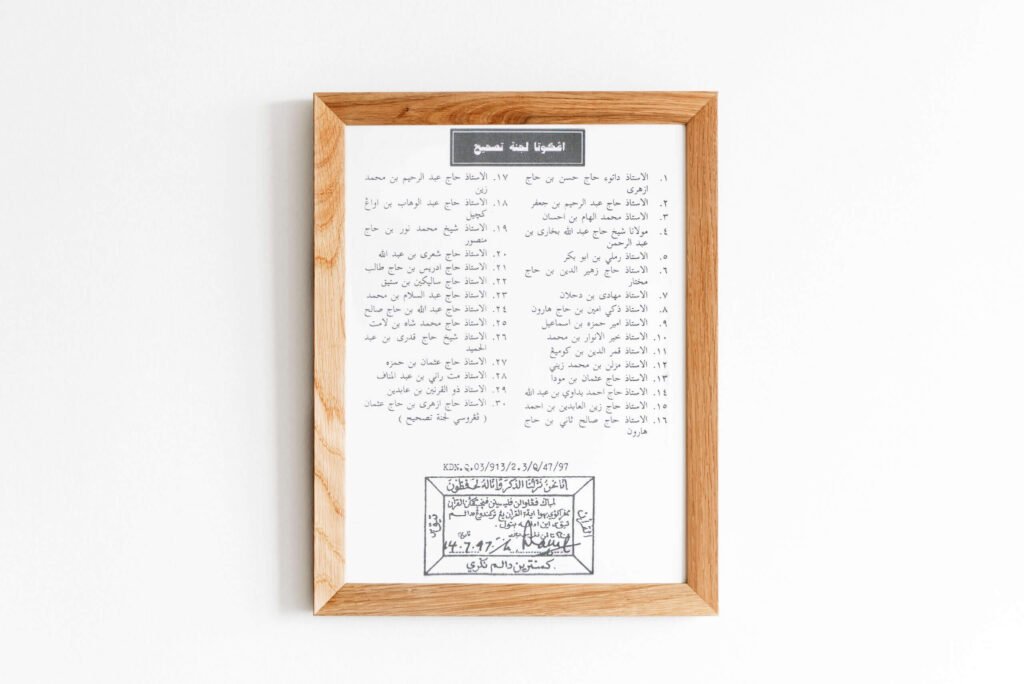 اڠݢوتا لجنة تصحيح
١. الاستاذ داتوء حاج حسن بن حاج
ازهرى
٢. الاستاذ حاج عبد الرحيم بن جعفر
٣. الاستاذ محمد الهام بن احسان
٤. مولانا شيخ حاج عبد الله بخارى بن
عبد الرحمن
٥. الاستاذ رملي بن ابو بكر
٦. الاستاذ حاج زهير الدين بن حاج
مختار
٧. الاستاذ مهادى بن دحلان
٨. الاستاذ ذكي امين بن حاج هارون
٩. الاستاذ امير حمزه بن اسماعيل
١٠. الاستاذ خير الانوار بن محمد
١١. الاستاذ قمر الدين بن كوميڠ
١٢. الاستاذ مزلن بن محمد زيني
١٣. الاستاذ حاج عثمان بن مودا
١٤. الاستاذ حاج احمد بداوي بن عبد الله
١٥. الاستاذ حاج زين العابدين بن احمد
١٦. الاستاذ حاج صالح ثاني بن حاج
هارون
١٧. الاستاذ حاج عبد الرحيم بن محمد
زين
١٨. الاستاذ حاج عبد الوهاب بن اواڠ
كچيل
١٩. الاستاذ شيخ محمد نور بن حاج
منصور
٢٠. الاستاذ حاج شعرى بن عبد الله
٢١. الاستاذ حاج ادريس بن حاج طالب
٢٢. الاستاذ حاج ساليكين بن ستيق
٢٣. الاستاذ حاج عبد السلام بن محمد
٢٤. الاستاذ حاج عبد الله بن حاج صالح
٢٥. الاستاذ حاج محمد شاه بن لامت
٢٦. الاستاذ شيخ حاج قدرى بن عبد
الحميد
٢٧. الاستاذ حاج عثمان بن حمزه
٢٨. الاستاذ مت راني بن عبد المناف
٢٩. الاستاذ ذو القرنين بن عابدين
٣٠. الاستاذ حاج ازهرى بن حاج عثمان
( ڤڠروسي لجنة تصحيح )
KDN.Q.03/913/2.3/Q/47/97
إنا نحن نزلنا الذكر وإنا له لحافظون
القرآن
14.7.97
كمنترين دالم نݢري.